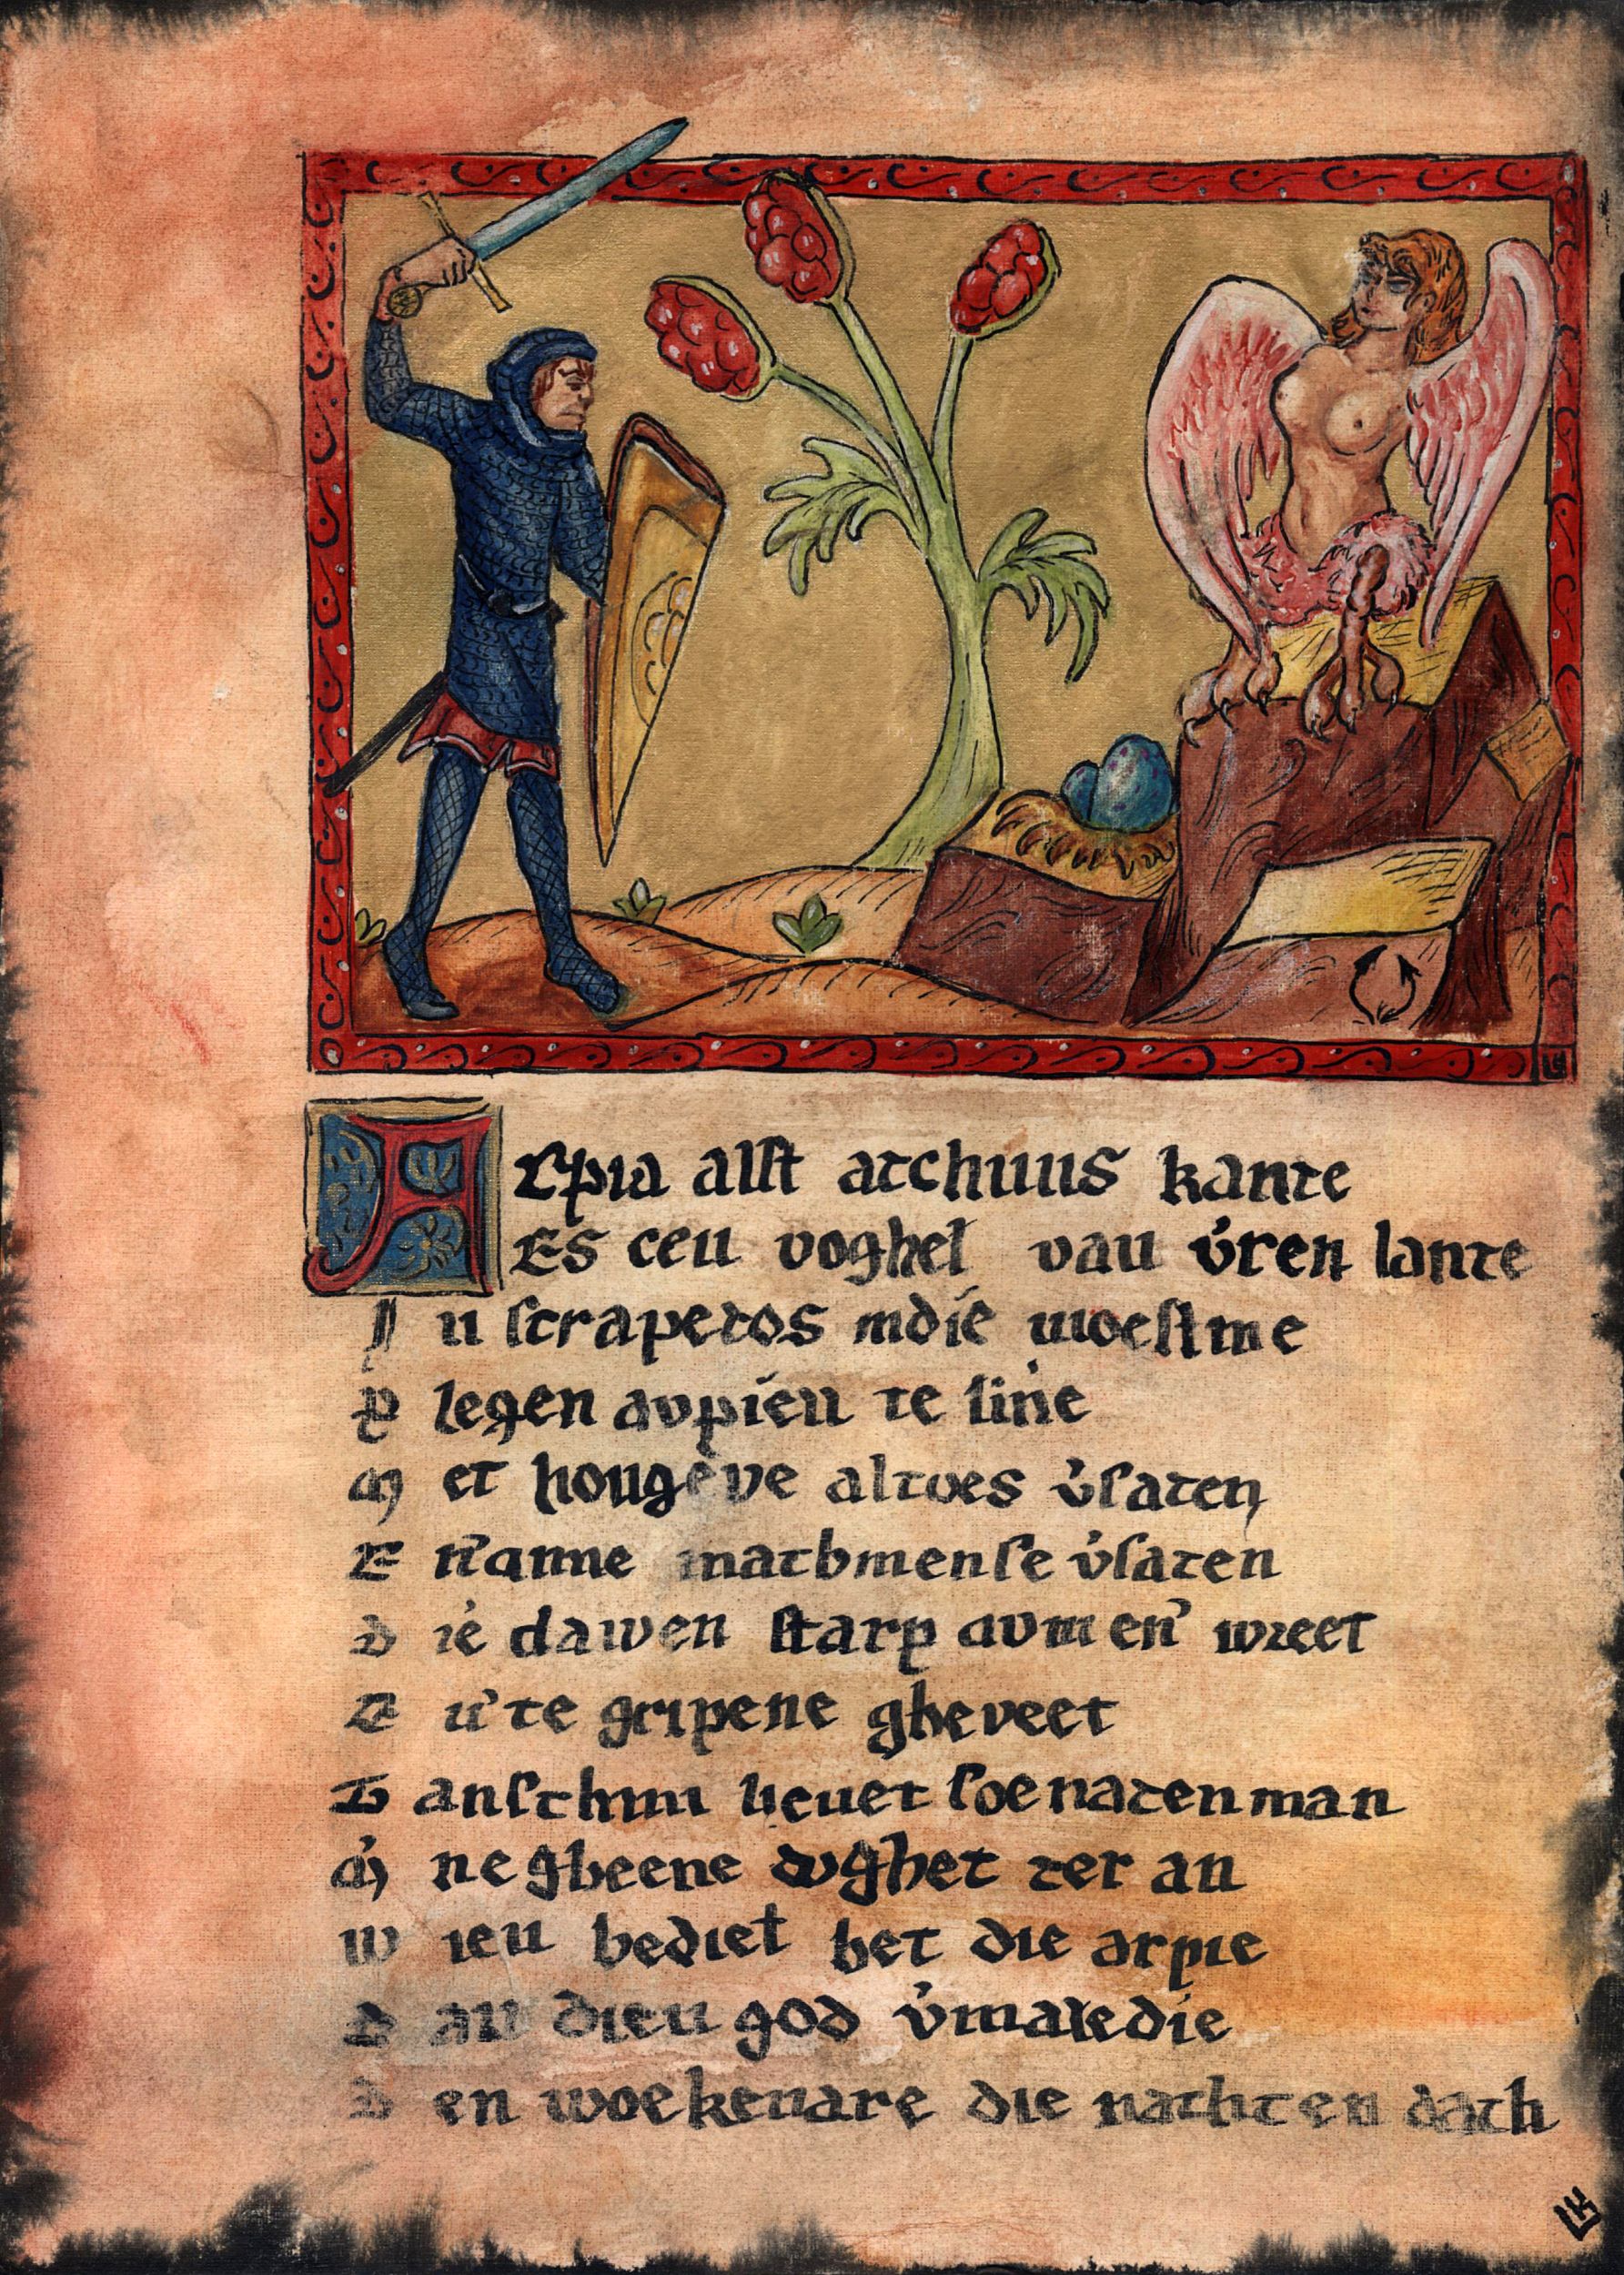 Arpia alst atchuus kante
Es ceu voghel vau v'ren lante
In scrapedos indie woestine
Plegen avpieu te sine
Met hougeve altoes v'saten
En'anne matbmense v'saten
Die dawen starp avm en' wreet
En' te gripene gheveet
Lansthun lieuet soe naten man
M'ne gheene dvghet ter an
Wieu bediet bet die arpie
Dau dieu god v'maledie
Den woekenare die nachten dach